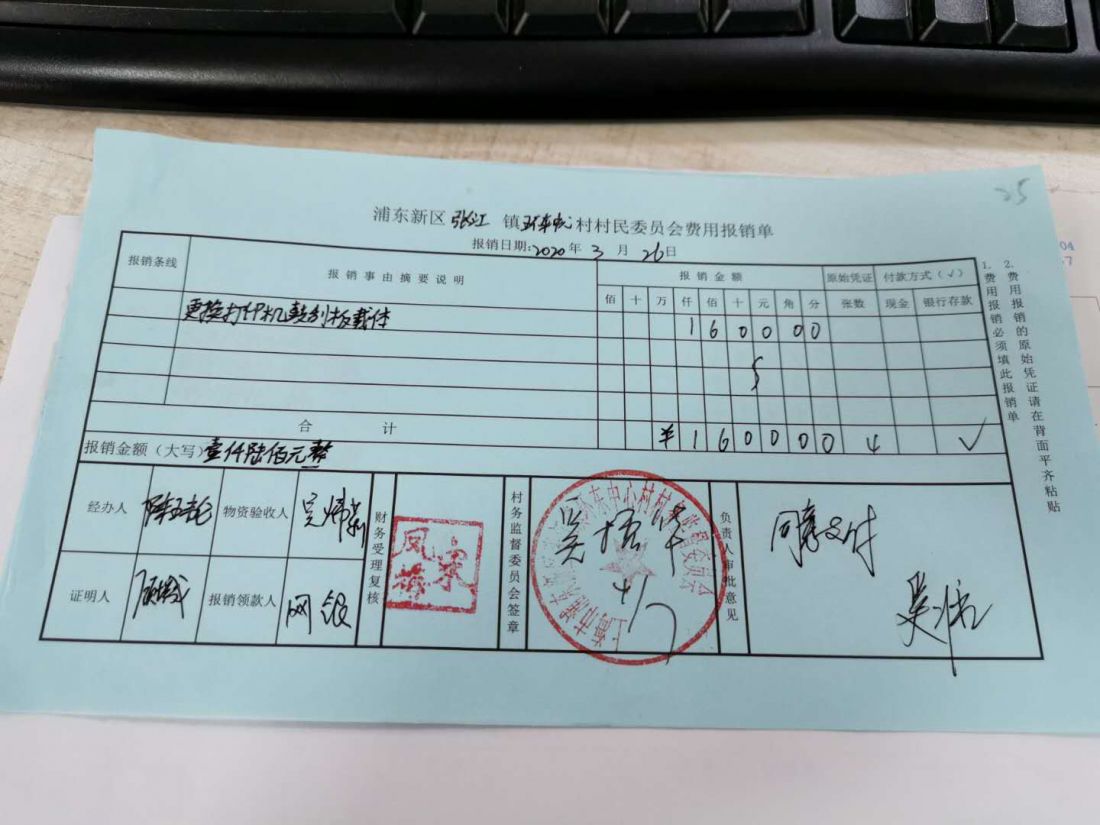 25
浦东新区 张江 镇 环东中心 村村民委员会费用报销单
报销日期:2020 年 3 月 26 日
报销条线 报销事由摘要说明 报销金额 原始凭证 付款方式(√)
佰 十 万 仟 佰 十 元 角 分 张数 现金 银行存款
更换打印机鼓刮板载体 1 6 0 0 0 0
合计 ¥ 1 6 0 0 0 0 4 √
报销金额(大写) 壹仟陆佰元整
经办人 物资验收人 吴炜莉 财务受理复核 宋凤梅 村务监督委员会签章 4/7 负责人审批意见 同意支付
证明人 报销领款人 网银
1.费用报销必须填此报销单
2.费用报销的原始凭证请在背面平齐粘贴
04
7